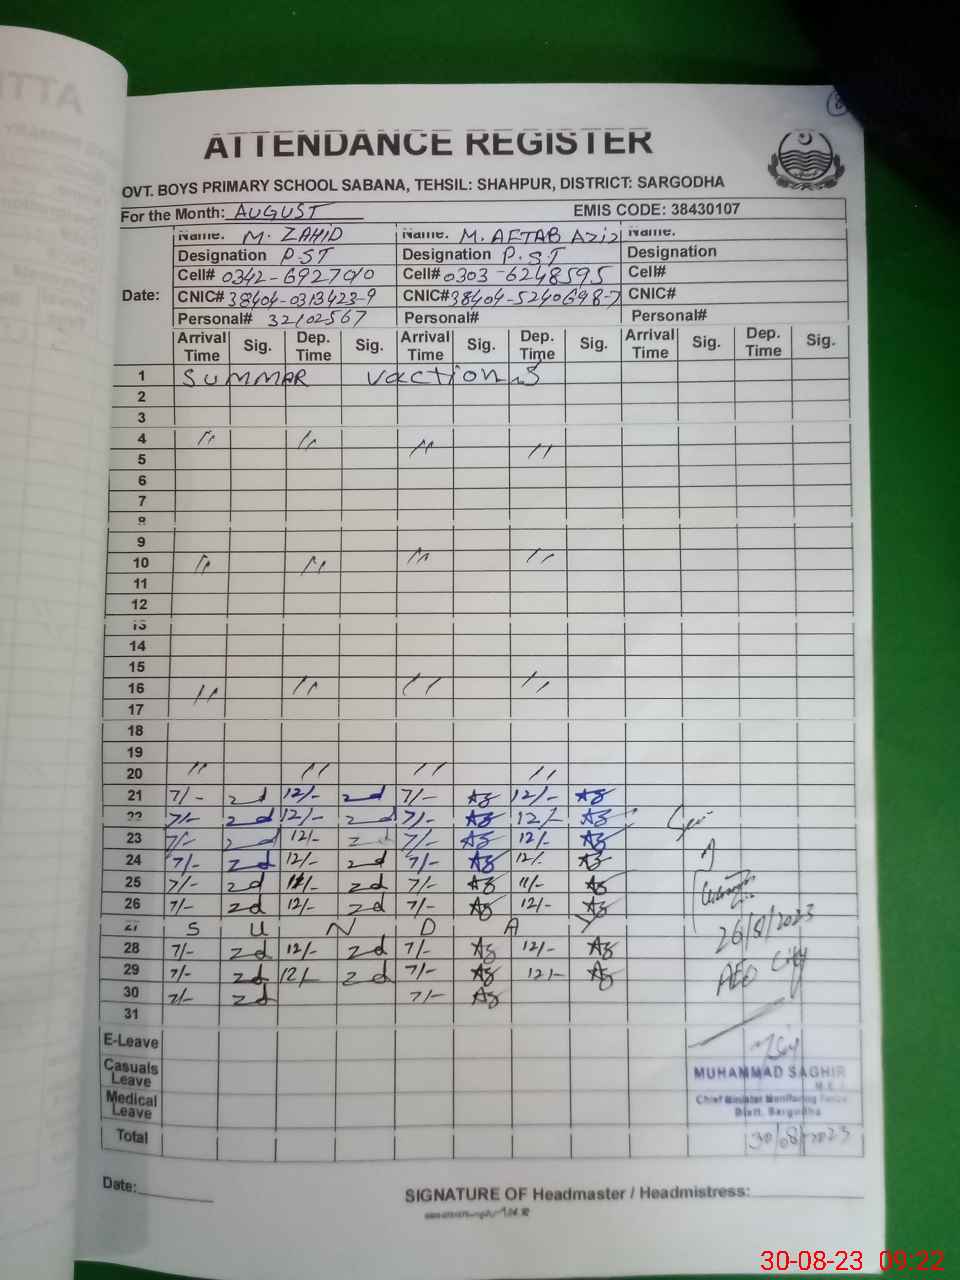 ATTENDANCE REGISTER
OVT. BOYS PRIMARY SCHOOL SABANA, TEHSIL: SHAHPUR, DISTRICT: SARGODHA
For the Month: AUGUST EMIS CODE: 38430107
Date:
Name. M. ZAHID Name. M. AFTAB Aziz Name.
Designation PST Designation P.ST Designation
Cell# 0342-6927010 Cell# 0303-6248595 Cell#
CNIC# 38404-0313423-9 CNIC# 38404-5240698-7 CNIC#
Personal# 32102567 Personal# Personal#
Arrival Time Sig. Dep. Time Sig. Arrival Time Sig. Dep. Time Sig. Arrival Time Sig. Dep. Time Sig.
1 SUMMAR vactions
2
3
4 " " " "
5
6
7
8
9
10 " " " "
11
12
13
14
15
16 " " " "
17
18
19
20 " " " "
21 7/- zd 12/- zd 7/- Az 12/- Az
22 7/- zd 12/- zd 7/- Az 12/- Az
23 7/- zd 12/- zd 7/- Az 12/- Az
24 7/- zd 12/- zd 7/- Az 12/- Az
25 7/- zd 11/- zd 7/- Az 11/- Az
26 7/- zd 12/- zd 7/- Az 12/- Az
27 S U N D A Y
28 7/- zd 12/- zd 7/- Az 12/- Az
29 7/- zd 12/- zd 7/- Az 12/- Az
30 7/- zd 7/- Az
31
26/8/2023
AEO City
E-Leave
Casuals Leave
Medical Leave
Total
MUHAMMAD SAGHIR
M.E.A
Chief Minister Monitoring Force
Distt. Sargodha
30/08/2023
Date:
SIGNATURE OF Headmaster / Headmistress:
30-08-23 09:22